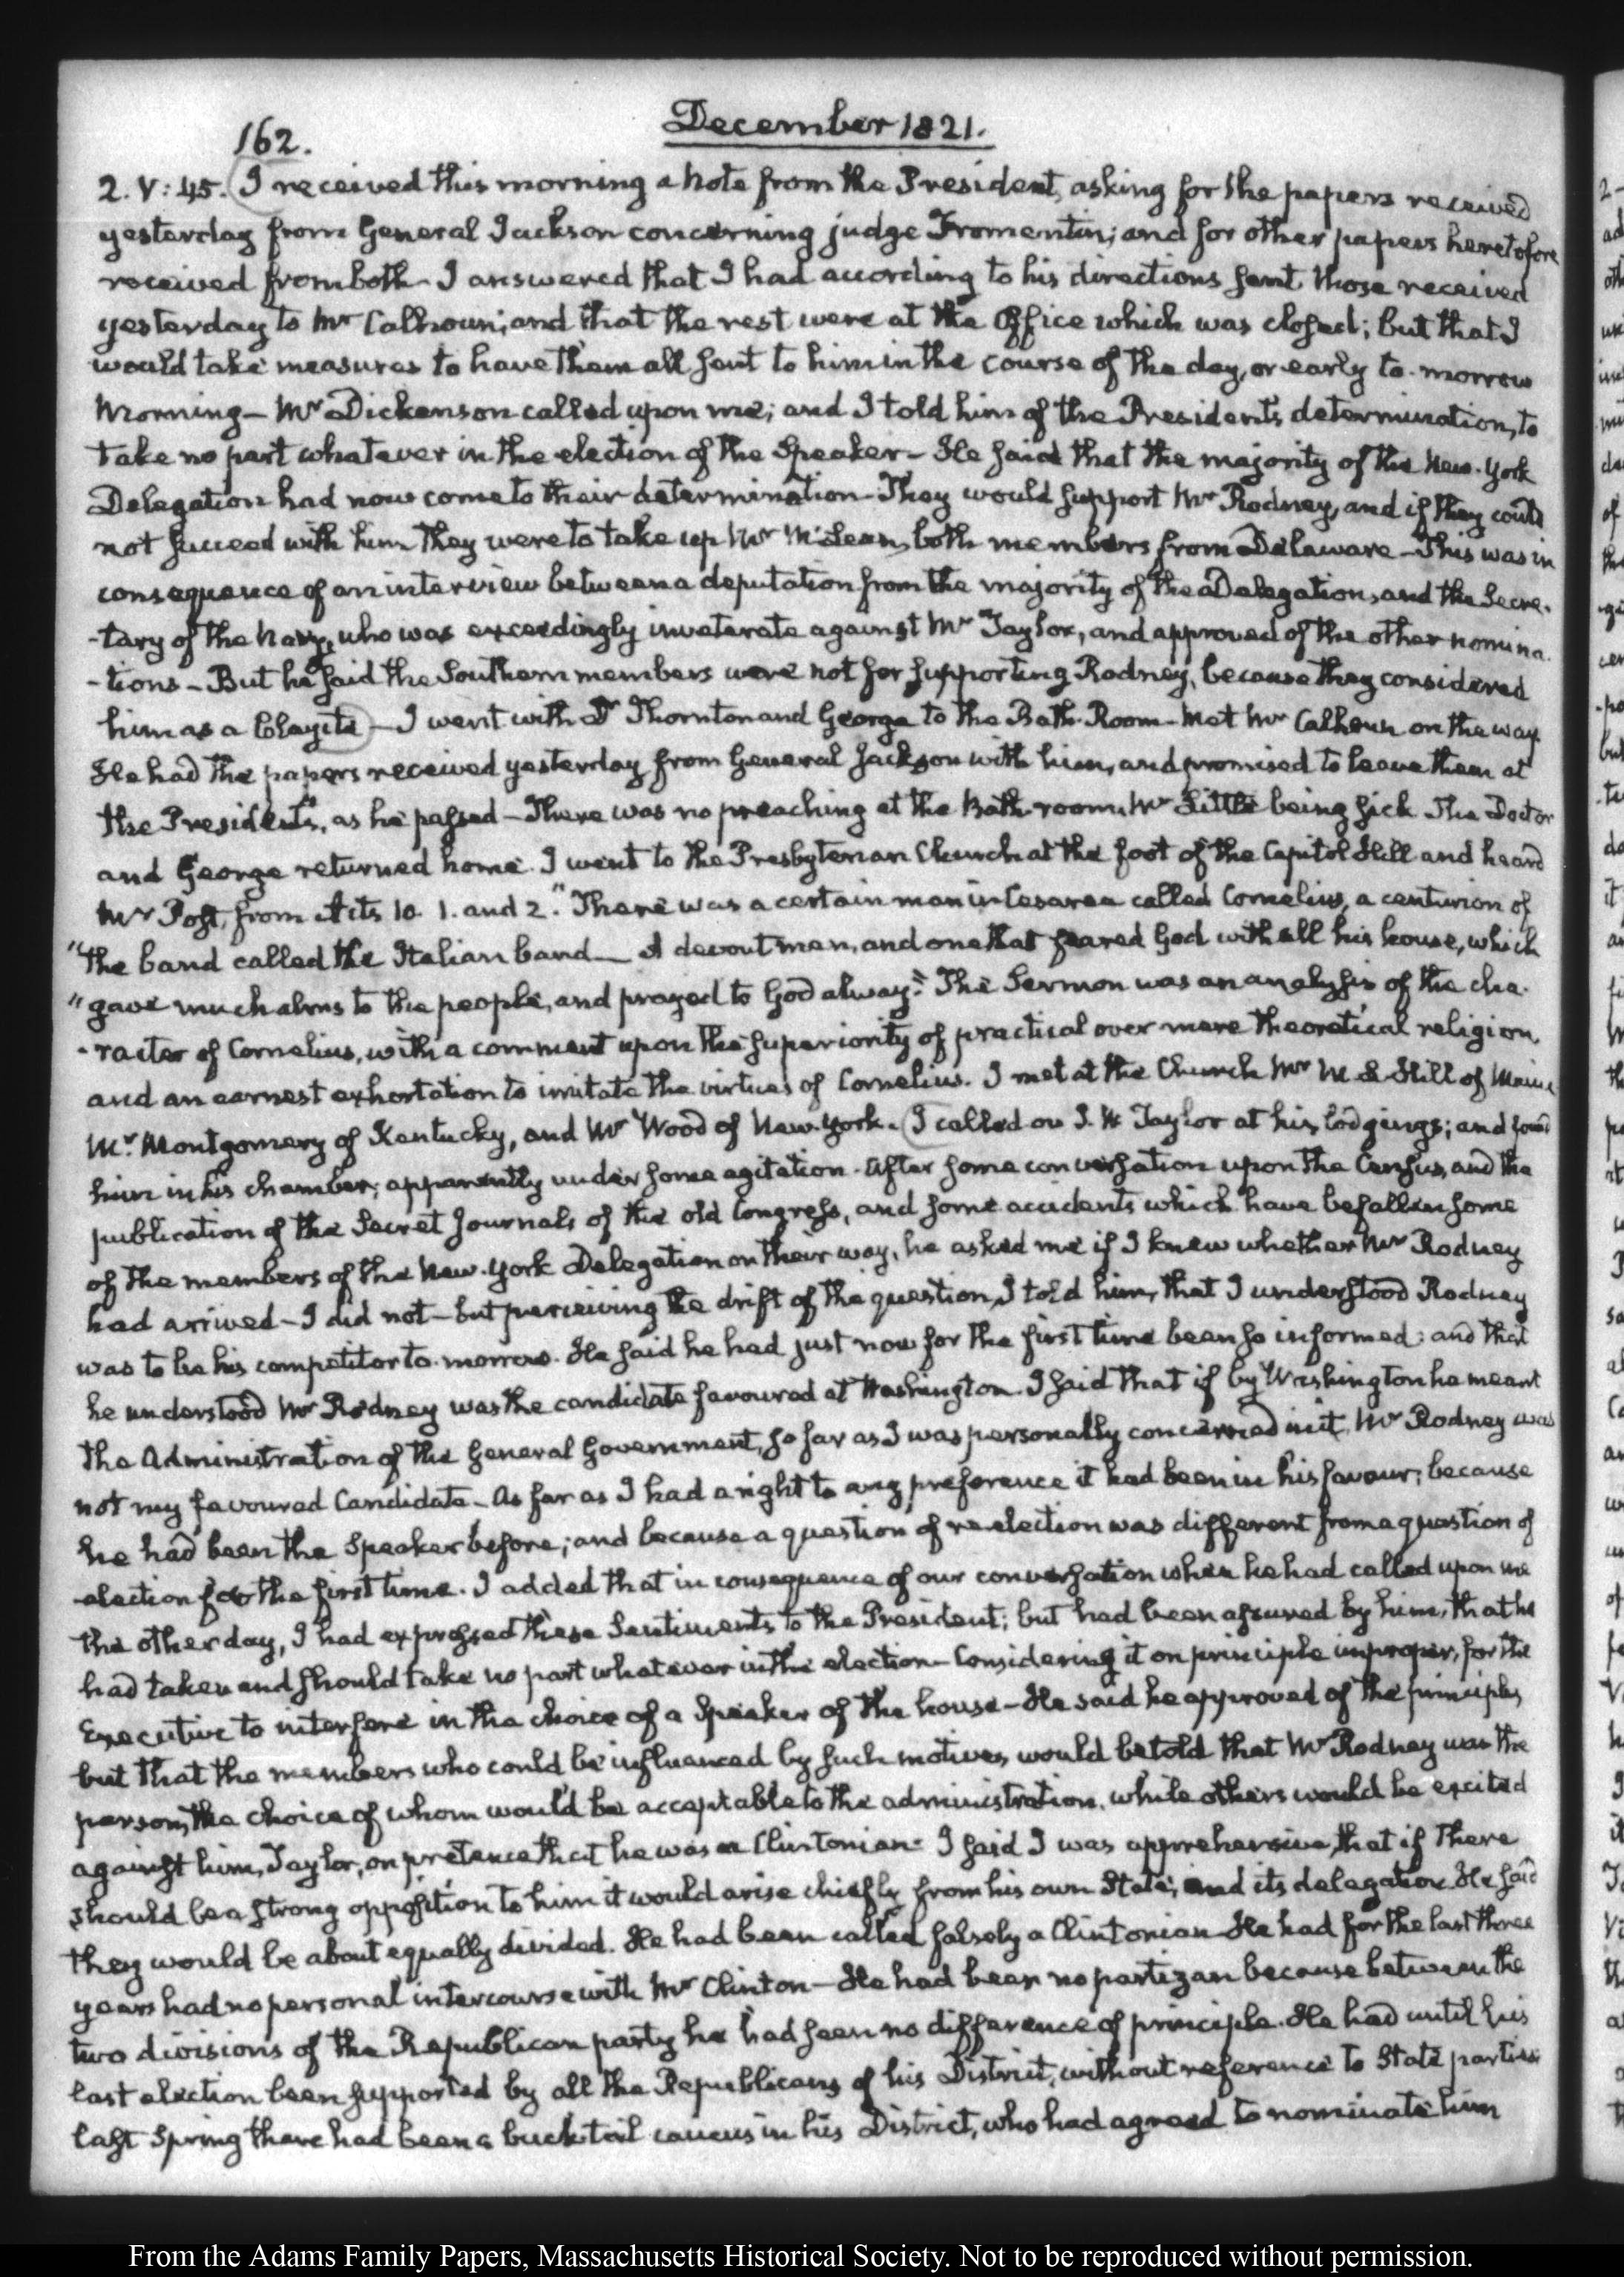 December 1821.
162.
2. V: 45. I received this morning a Note from the President, asking for the papers received
yesterday from General Jackson concerning judge Fromentin; and for other papers heretofore
received from both. I answered that I had according to his directions sent those received
yesterday to Mr Calhoun; and that the rest were at the Office which was closed; but that I
would take measures to have them all sent to him in the course of the day, or early to-morrow
Morning— Mr Dickenson called upon me; and I told him of the President's determination, to
take no part whatever in the election of the Speaker— He said that the majority of the New-York
Delegation had now come to their determination— They would support Mr Rodney, and if they could
not succeed with him they were to take up Mr McLean, both members from Delaware— This was in
consequence of an interview between a deputation from the majority of the Delegation, and the Secre-
-tary of the Navy, who was exceedingly inveterate against Mr Taylor, and approved of the other nomina-
-tions— But he said the Southern members were not for supporting Rodney, because they considered
him as a Clayite— I went with Dr Thornton and George to the Bath-Room— Met Mr Calhoun on the way
He had the papers received yesterday from General Jackson with him, and promised to leave them at
the President's, as he passed— There was no preaching at the Bath-room, Mr Little being sick The Doctor
and George returned home. I went to the Presbyterian Church at the foot of the Capitol Hill and heard
Mr Post, from Acts 10. 1. and 2. "There was a certain man in Cesarea called Cornelius, a centurion of
"the band called the Italian band— A devout man, and one that feared God with all his house, which
"gave much alms to the people, and prayed to God alway." The Sermon was an analysis of the cha-
-racter of Cornelius, with a comment upon the superiority of practical over mere theoretical religion,
and an earnest exhortation to imitate the virtues of Cornelius. I met at the Church Mr M. L. Hill of Maine
Mr Montgomery of Kentucky, and Mr Wood of New-York. I called on J. W. Taylor at his lodgings; and found
him in his chamber; apparently under some agitation. After some conversation upon the Census, and the
publication of the Secret Journals of the old Congress, and some accidents which have befallen some
of the members of the New-York Delegation on their way, he asked me if I knew whether Mr Rodney
had arrived— I did not— but perceiving the drift of the question, I told him, that I understood Rodney
was to be his competitor to-morrow. He said he had just now for the first time been so informed: and that
he understood Mr Rodney was the candidate favoured at Washington. I said that if by Washington he meant
the Administration of the General Government, so far as I was personally concerned in it, Mr Rodney was
not my favoured Candidate— As far as I had a right to any preference it had been in his favour; because
he had been the Speaker before; and because a question of re-election was different from a question of
election for the first time. I added that in consequence of our conversation when he had called upon me
the other day, I had expressed these Sentiments to the President; but had been assured by him, that he
had taken and should take no part whatever in the election— Considering it on principle improper, for the
Executive to interfere in the choice of a Speaker of the house— He said he approved of the principle,
but that the members who could be influenced by such motives, would be told that Mr Rodney was the
person, the choice of whom would be acceptable to the administration, while others would be excited
against him, Taylor, on pretence that he was a Clintonian. I said I was apprehensive, that if there
should be a strong opposition to him it would arise chiefly from his own State, and its delegation. He said
they would be about equally divided. He had been called falsely a Clintonian— He had for the last three
years had no personal intercourse with Mr Clinton— He had been no partizan because between the
two divisions of the Republican party he had seen no difference of principle. He had until his
last election been supported by all the Republicans of his District, without reference to State parties
last Spring there had been a bucktail caucus in his District, who had agreed to nominate him
From the Adams Family Papers, Massachusetts Historical Society. Not to be reproduced without permission.